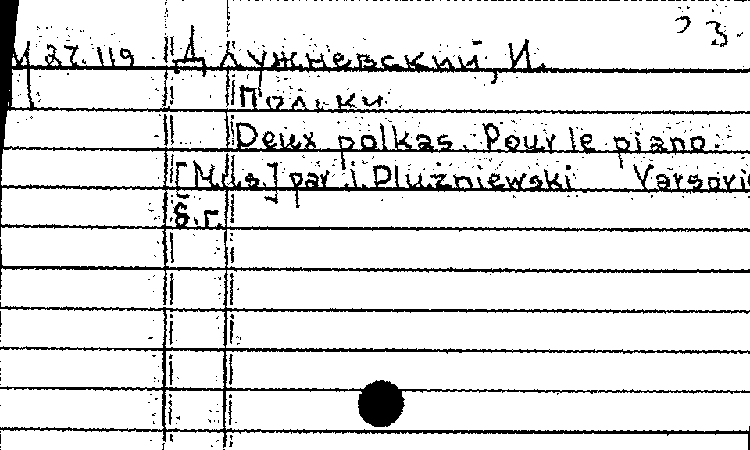 23.
М 27.119 Длужневский, И.
Польки
Deux polkas. Pour le piano.
[Mus.] par I. Dlużniewski Varsovie
б.г.